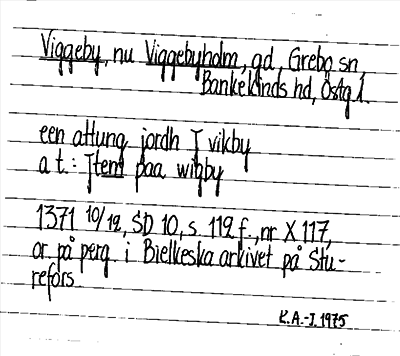 Viggeby, nu Viggebyholm, gd, Grebo sn,
Bankekinds hd, Östgl.
een attung jordh J vikby
a t.: Jtem paa wigby
1371 10/12, SD 10, s. 112 f., nr X 117,
or. på perg. i Bielkeska arkivet på Stu-
refors
K.A.-J. 1975